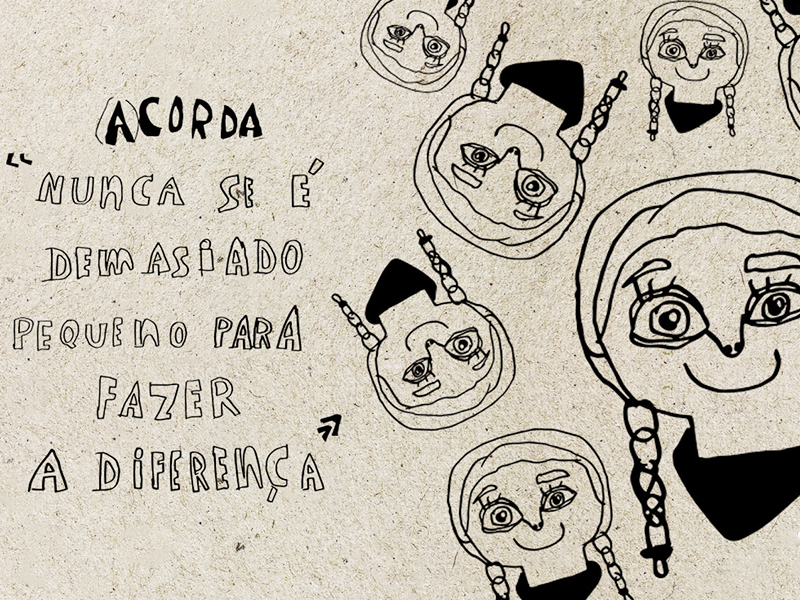 ACORDA
“NUNCA SE É
DEMASIADO
PEQUENO PARA
FAZER
A DIFERENÇA”